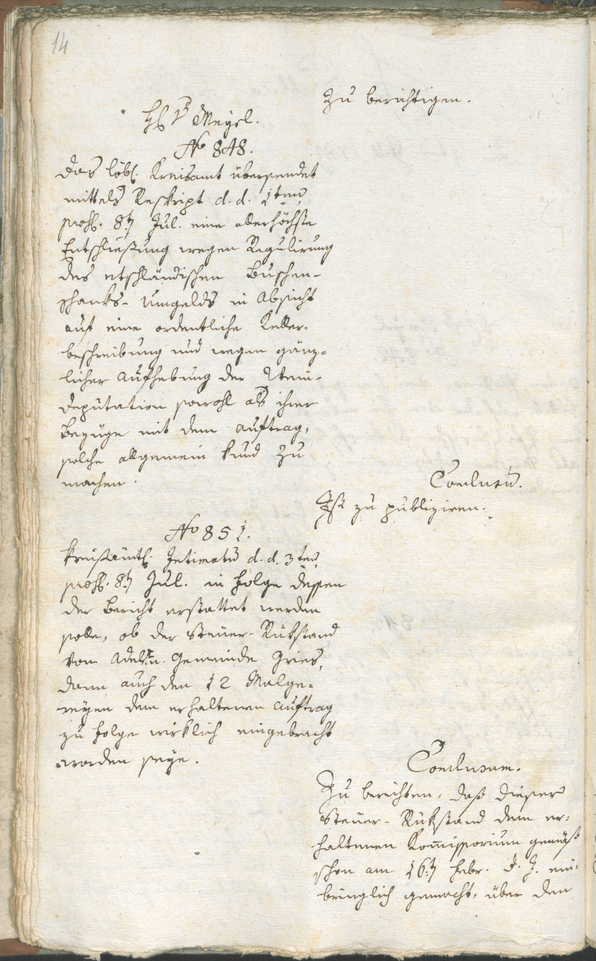 14
zu berichtigen.
H: B: Meysl.
No 848.
Das löbl. Kreisamt übersendet
mittels Reskript d. d. 1ten
præs. 8ten Jul. eine allerhöchste
Entschließung wegen Regulirung
des etschländischen Buschen-
schanks-Umgelds in Absicht
auf eine ordentliche Keller-
beschreibung und wegen gänz-
licher Aufhebung der Wein-
deputation sowohl als ihrer
Bezüge mit dem Auftrag,
solche allgemein kund zu
machen.
Conclusū.
Ist zu publiziren.
No 851.
Kreisämtl. Intimatū d. d. 3ten
præs. 8ten Jul. in Folge dessen
der Bericht erstattet werden
solle, ob der Steuer-Rükstand
von Adel. u. Gemeinde Gries,
dann auch den 12 Malge-
reyen dem erhaltenen Auftrag
zu Folge wirklich eingebracht
worden seye.
Conclusum.
Zu berichten, daß dieser
Steuer-Rükstand dem er-
haltenen Kom̄issorium gemäß
schon am 16ten Febr. d. J. ein-
bringlich gemacht, über den